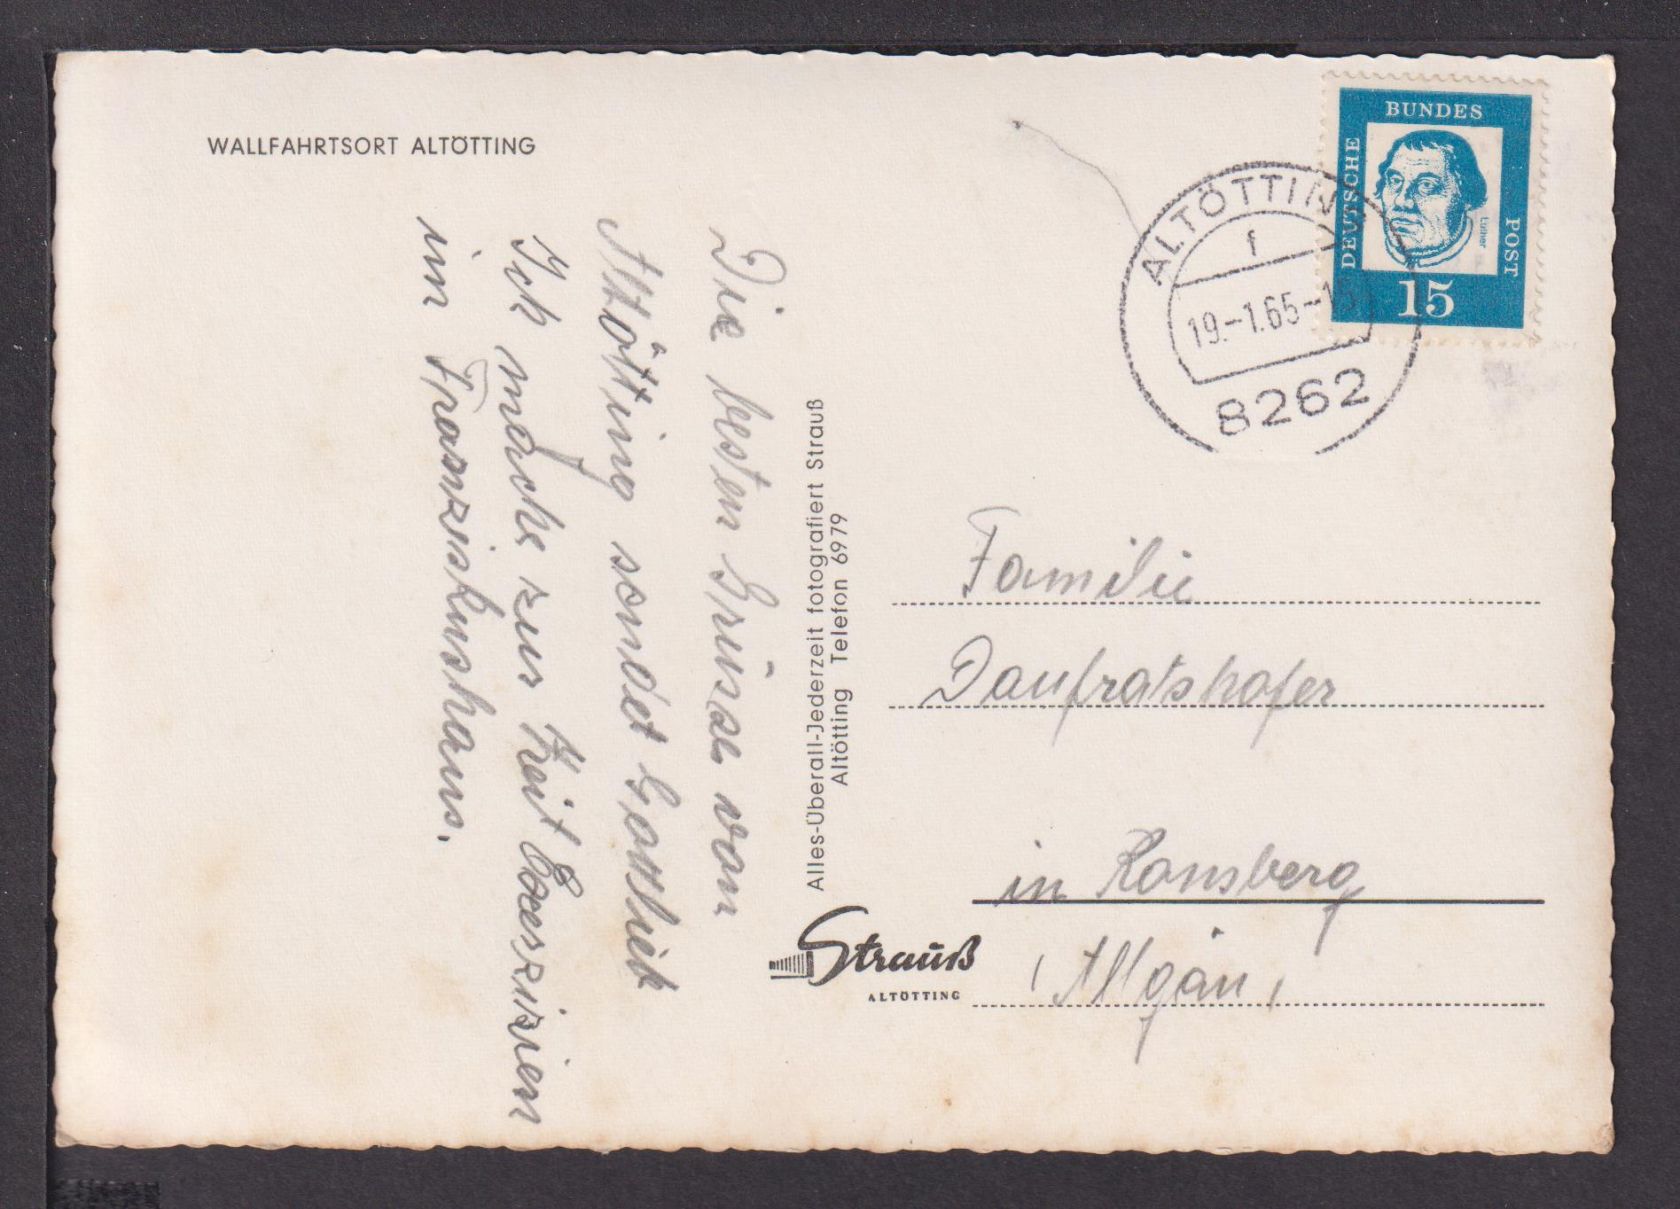 WALLFAHRTSORT ALTÖTTING
Die besten Grüsse von
Altötting sendet Gottlieb
Ich mache zur Zeit Exerzizien
im Franziskushaus.
Alles-Überall-Jederzeit fotografiert Strauß
Altötting Telefon 6979
Strauß
ALTÖTTING
DEUTSCHE
BUNDES
POST
Luther
15
ALTÖTTING
f
19.-1.65-15
8262
Familie
Daufratshofer
in Ronsberg
(Allgäu)